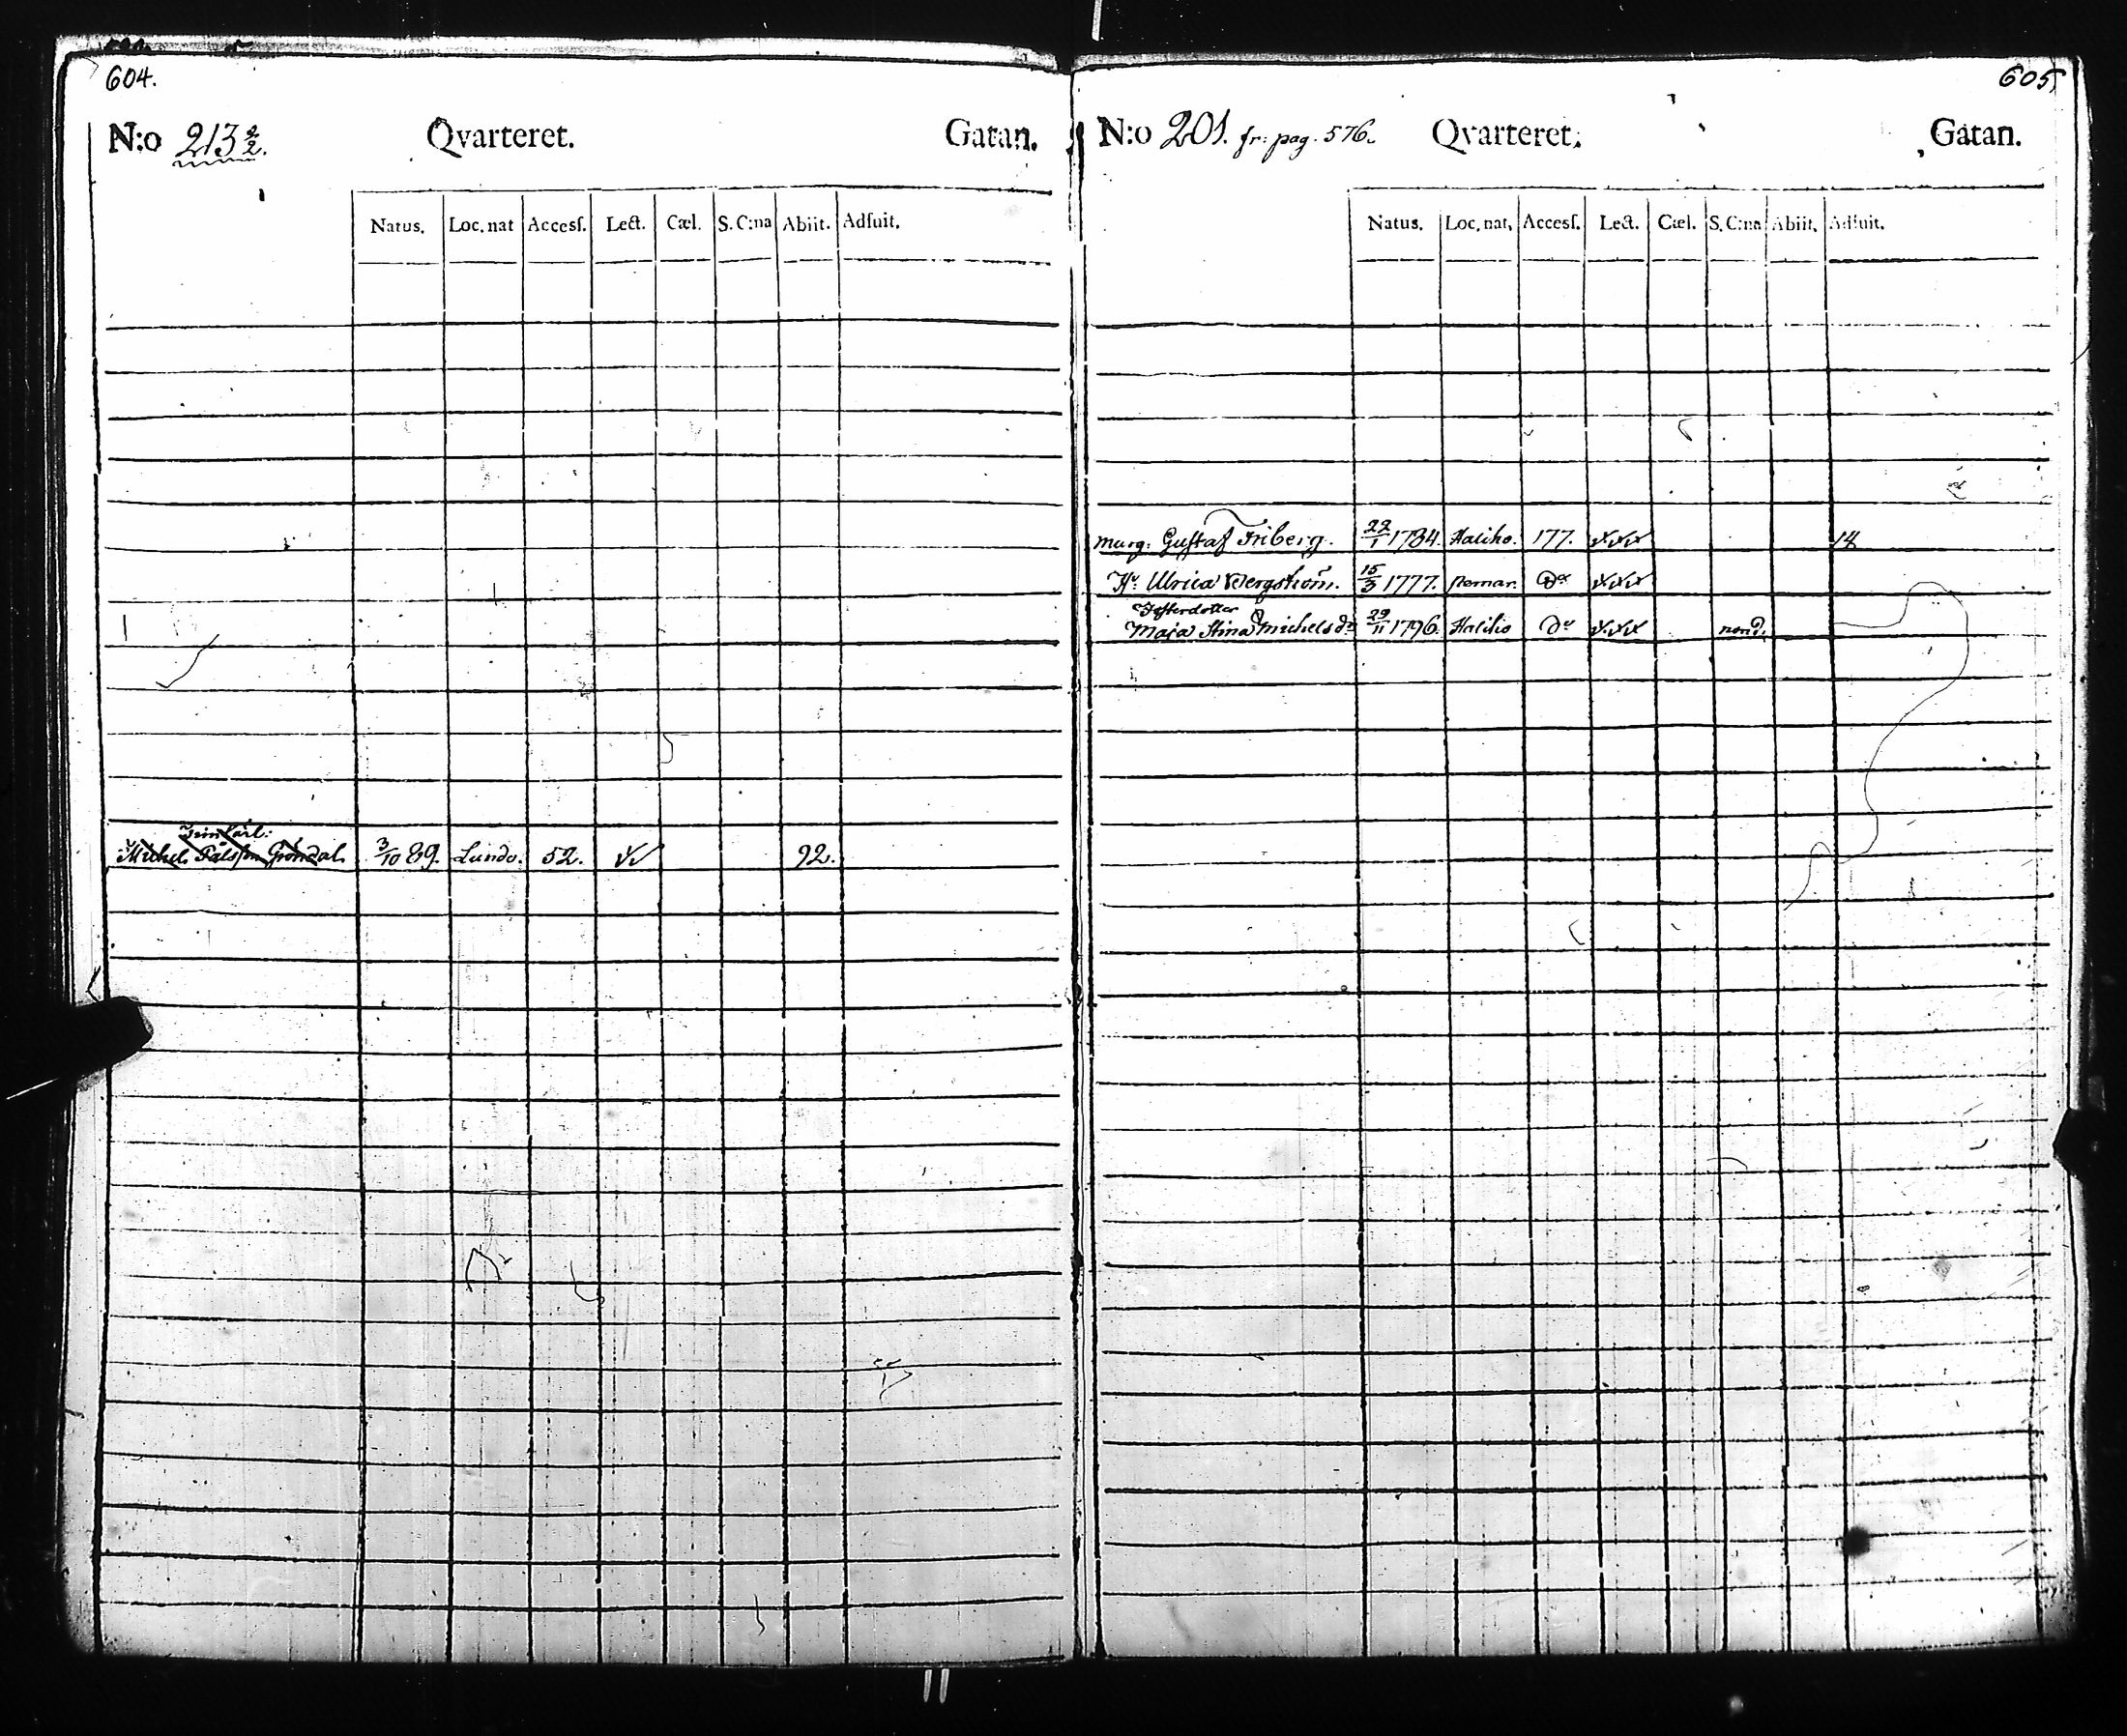 604.
N:o 213 2/2. Qvarteret. Gatan.
Natus. Loc. nat Accesſ. Lect. Cæl. S. C:na Abiit. Adſuit.
Michel Gröndal. 3/10 89. Lundo. 52. 92.
605.
N:o 201. fr: pag. 576. Qvarteret. Gatan.
Natus. Loc. nat. Accesſ. Lect. Cæl. S. C:na Abiit. Adſuit.
Gustaf Friberg. 22/1 1784. Haliko. 177. 14
Ulrica Bergström. 15/3 1777. Pemar. Do
Fosterdotter
Maja Stina Michelsdr 29/11 1796. Haliko Do